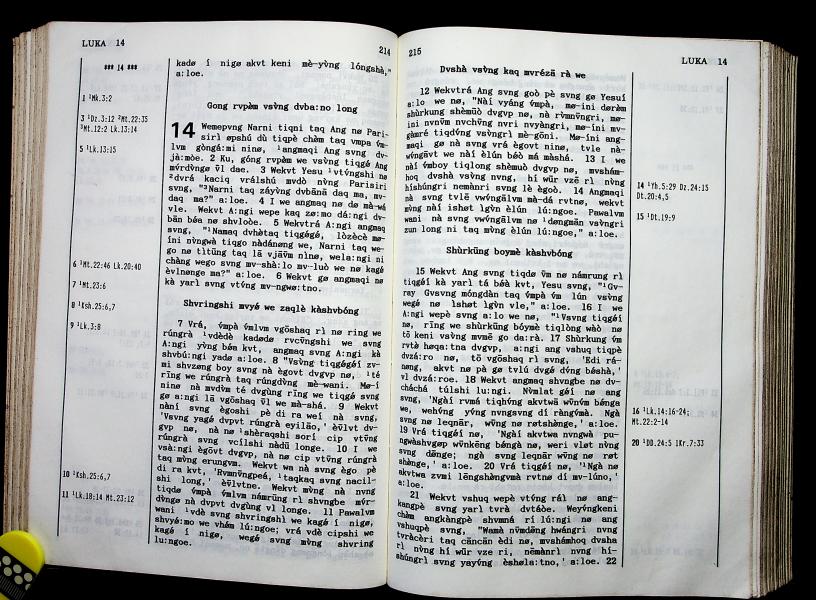 LUKA 14
214
*** 14 ***
1 ¹Mk.3:2
3 ¹Dz.3:12 ²Mt.22:35
³Mt.12:2 Lk.13:14
5 ¹Lk.13:15
6 ¹Mt.22:46 Lk.20:40
7 ¹Mt.23:6
8 ¹Ksh.25:6,7
9 ¹Lk.3:8
10 ¹Ksh.25:6,7
11 ¹Lk.18:14 Mt.23:12
kadø í nigø akvt keni mè-yv̀ng lóngshà,"
a:loe.
Gong rvpèm vsv̀ng dvba:no long
14 Wemepvng Narni tiqni taq Ang nø Pari-
sirì øpshú dù tiqpè chèm taq vmpa v́m-
lvm gòngá:mì ninø, ¹angmaqí Ang svng dv-
jà:mòe. 2 Ku, góng rvpèm we vsv̀ng tiqgé Ang
mv́rdv̀ngø v̄l dae. 3 Wekvt Yesu ¹vtv́ngshì nø
²dvrá kaciq vrálshú mvdò nv̀ng Parisiri
svng, "³Narni taq záyv̀ng dvbānā daq ma, mv-
daq ma?" a:loe. 4 I we angmaq nø dø mà-wá
vle. Wekvt A:ngí wepe kaq zø:mo dá:ngì dv-
bān béa nø shvloòe. 5 Wekvtrá A:ngí angmaq
svng, "¹Namaq dvhøtaq tiqgégé, lòzècè mø-
íni nv̀ngwà tiqgo nàdánøng we, Narni taq we-
go nø tìtūng taq lā vjāv̄m nìnø, wela:ngì ni
chàng wego svng mv-shà:lo mv-luò we nø kagé
èvlnønge ma?" a:loe. 6 Wekvt gø angmaqí nø
kà yarì svng vtv́ng mv-ngwø:tno.
Shvringshì mvyé we zaqlè kàshvbóng
7 Vrá, v́mpà v́mlvm vgōshaq rì nø ring we
rúngrà ¹vdèdè kadødø rvcv̄ngshì we svng
A:ngí yv̀ng béa kvt, angmaq svng A:ngí kà
shvbú:ngì yadø a:loe. 8 "Vsv̀ng tiqgégéí zv-
mì shvzøng boy svng nà ègovt dvgvp nø, ¹té
rīng we rúngrà taq rúngdv̀ng mè-wanì. Mø-í
ninø nà mvdv̀m té dvgùng rīng we tiqgé svng
gø a:ngí lā vgōshaq v̄l we mà-shá. 9 Wekvt
nàní svng ègoshì pè dì ra weí nà svng,
'Vsvng yagé dvpvt rúngrà eyilāo,' èv̄lvt dv-
gvp nø, nà nø ¹shèraqshì sorì cip vtv̄ng
rúngrà svng vcílshì nàdū longe. 10 I we
vsà:ngì ègōvt dvgvp, nà nø cip vtv̄ng rúngrà
taq mv̀ng erungvm. Wekvt wa nà svng ègo pè
dì ra kvt, 'Rvmnv̄ngpeá, ¹taqkaq svng nacil-
shì long,' èv̄lvtne. Wekvt mv̀ng nà nvng
tiqdø v́mpà v́mlvm námrūng rì shvngbe mv́r-
dv̀ngø nà dvpvt dvgùng vl longe. 11 Pawalvm
wani ¹vdè svng shvringshì we kagé í nìgø,
shvyé:mo we vhám lú:ngoe; vrá vdè cípshì we
kagé í nìgø, wegé svng mv̀ng shvring
lu:ngoe.
215
LUKA 14
Dvshà vsv̀ng kaq mvrézā rà we
12 Wekvtrá Ang svng goò pè svng gø Yesuí
a:lo we nø, "Nàí vyáng v́mpà, mø-íni dørèm
shùrkung shèmùò dvgvp nø, nà rv̀mnv̄ngrì, mø-
íni nvnv̄m nvchv̄ng nvrì nvyàngrì, mø-íni mv-
gàmré tiqdv́ng vsv̀ngrì mè-gōnì. Mø-íni ang-
maqí gø nà svng vrá égovt nìnø, tvle nà-
wv̄ngāvt we nàí èlún béò má màshá. 13 I we
nàí v́mboy tiqlong shèmùò dvgvp nø, mvshám-
hoq dvshà vsv̀ng nvng, hí wūr vzè rì nv̀ng
híshúngrì nemànrì svng lè ègoò. 14 Angmaqí
nà svng tvlē vwv̄ngālvm mà-dá rvtnø, wekvt
mv̀ng nàí ishøt lgv̀n èlún lú:ngoe. Pawalvm
wani nà svng vwv̄ngālvm nø ¹døngmān vsv̀ngrì
zun long nì taq mv̀ng èlún lu:ngoe," a:loe.
Shùrkūng boymè kàshvbóng
15 Wekvt Ang svng tiqdø v̄m nø námrung rì
tiqgéí kà yarì tá béà kvt, Yesu svng, "¹Gv-
ray Gvsvng móngdàn taq v́mpà v́m lún vsv̀ng
wegé nø lshøt lgv̀n vle," a:loe. 16 I we
A:ngí wepè svng a:lo we nø, "¹Vsvng tiqgéí
nø, rīng we shùrkūng bóymè tiqlòng wàò nø
tō keni vsv̀ng mvmē go da:rà. 17 Shùrkung v́m
rvtè høqa:tna dvgvp, a:ngí ang vshuq tiqpè
dvzá:ro nø, tō vgōshaq rì svng, 'Edì rá-
nøng, akvt nø pà gø tvlú dvgé dv́ng béshà,'
vl dvzá:roe. 18 Wekvt angmaq shvngbe nø dv-
cháchá túlshì lu:ngì. Nv̄mlat géí nø ang
svng, 'Ngàí rvmá tiqhv́ng akvtwā wv̄nv̄m bénga
we, wehv́ng yv́ng nvngsvng dì ràngv́mā. Ngà
svng nø leqnār, wv̄ng nø røtshènge,' a:loe.
19 Vrá tiqgéí nø, 'Ngàí akvtwa nvngwà pu-
ngwàshvgøp wv̄nkēng bénga nø, weri vløt nv̄ng
svng dønge; ngà svng leqnār wv̄ng nø røt
shènge,' a:loe. 20 Vrá tiqgéí nø, '¹Ngà nø
akvtwa zvmì lèngshàngvmà rvtnø dì mv-lúno,'
a:loe.
21 Wekvt vshuq wepè vtv́ng rál nø ang-
kangpè svng yarì tvrà dvtáòe. Weyv́ngkeni
chèm angkàngpè shvmná rì lú:ngì nø ang
vshuqpè svng, "Wamà nv̄mdøng hwángrì nvng
tvràcèrì taq càncān èdì nø, mvshámhoq dvsha
rì nv̀ng hí wūr vze rì, nēmànrì nvng hí-
shúngrì svng yayv́ng èshøla:tno,' a:loe. 22
14 ¹Yh.5:29 Dz.24:15
Dt.20:4,5
15 ¹Dt.19:9
16 ¹Lk.14:16-24;
Mt.22:2-14
20 ¹DD.24:5 1Kr.7:33